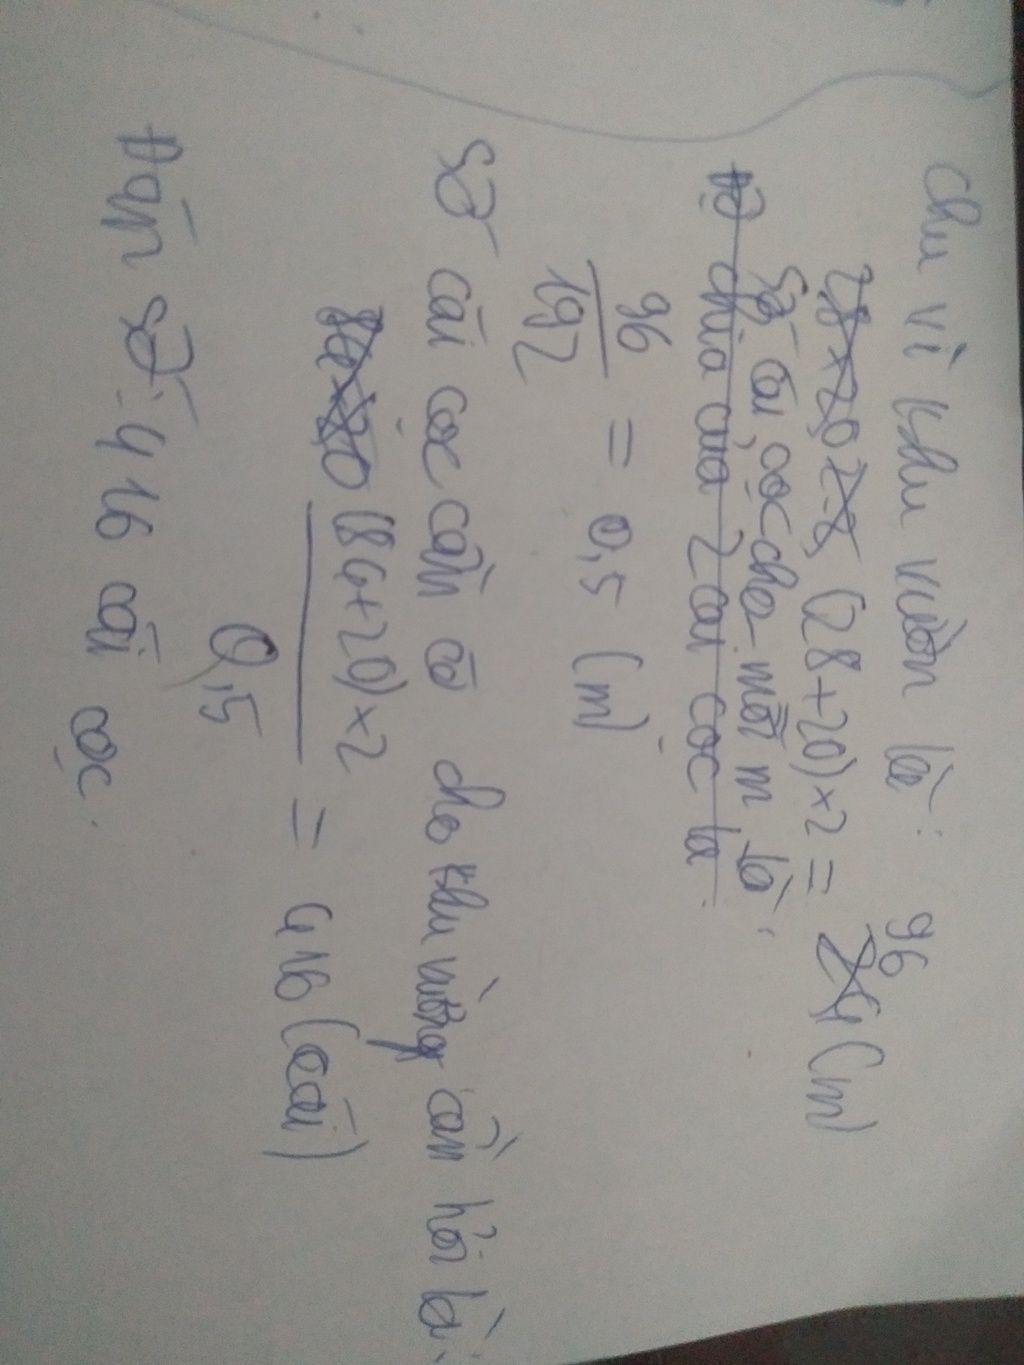 Chu vi khu vườn là:
(28+20)×2 = 96 (m)
Số cái cọc cho mỗi m là:
chia của 2 cái cọc là:
96/192 = 0,5 (m)
Số cái cọc cần có cho khu vường cần hỏi là:
(84+20)×2/0,5 = 416 (cái)
Đán số: 416 cái cọc.